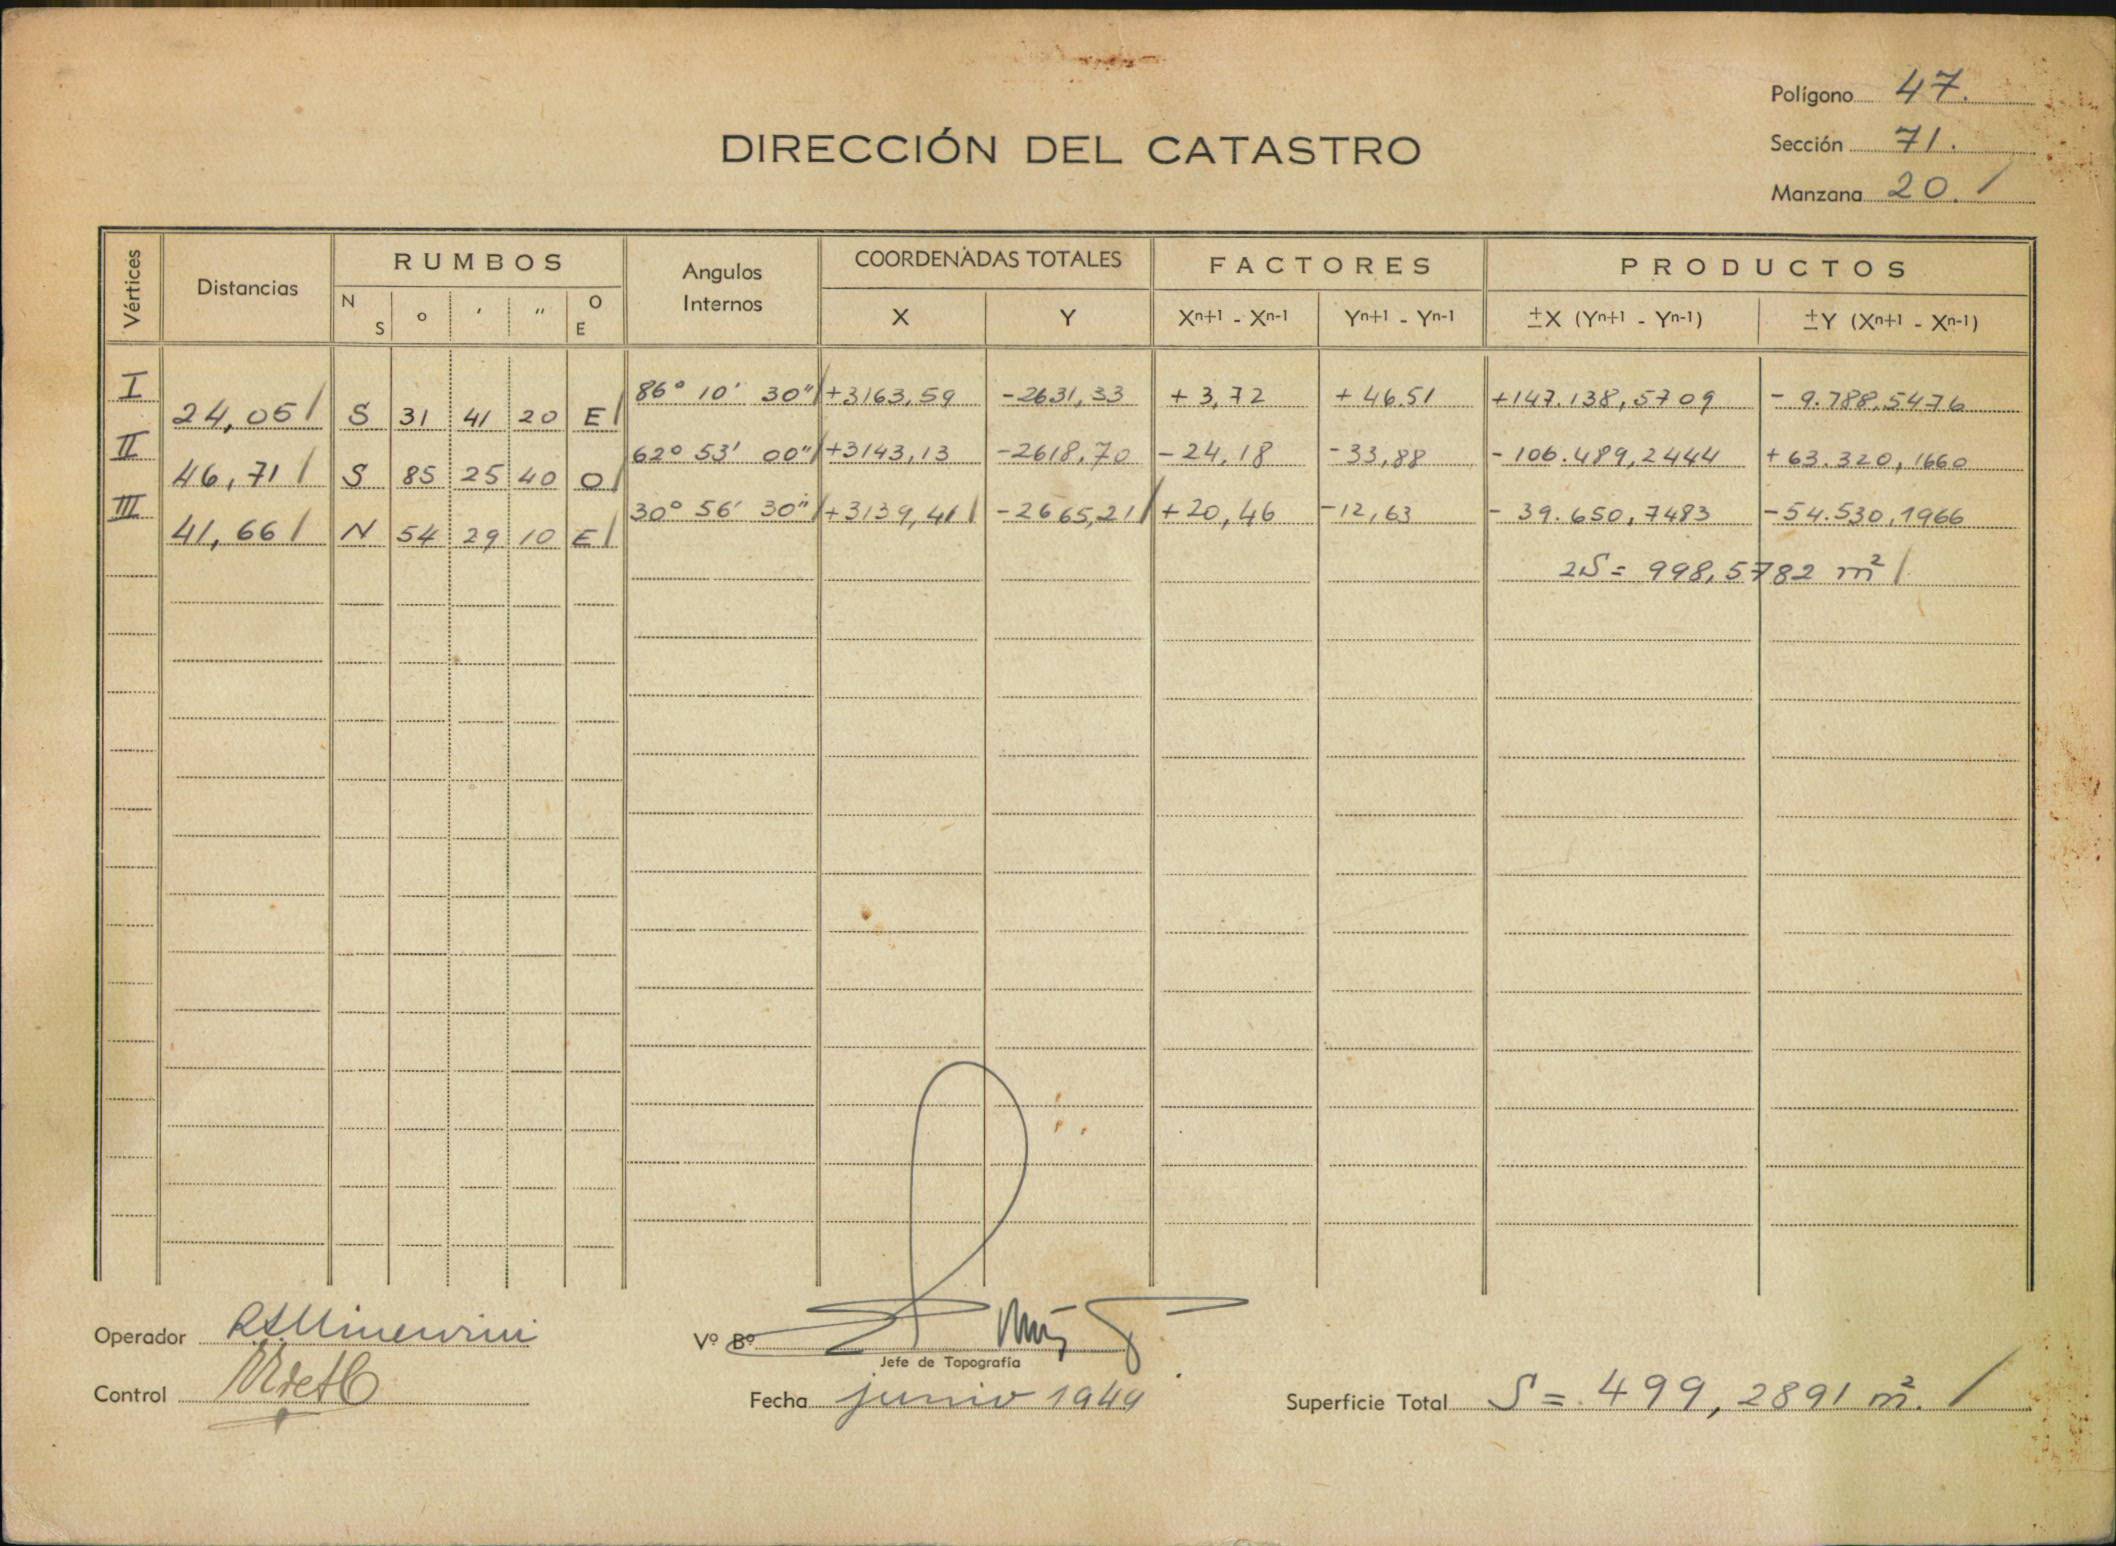 Polígono 47.
DIRECCIÓN DEL CATASTRO
Sección 71.
Manzana 20. /
Vértices Distancias RUMBOS Angulos Internos COORDENADAS TOTALES FACTORES PRODUCTOS
N S o ' " O E X Y Xn+1 - Xn-1 Yn+1 - Yn-1 ±X (Yn+1 - Yn-1) ±Y (Xn+1 - Xn-1)
I 86° 10' 30" / +3163,59 -2631,33 + 3,72 + 46.51 +147.138,5709 - 9.788,5476
24,05 / S 31 41 20 E /
II 62° 53' 00" / +3143,13 -2618,70 -24,18 -33,88 - 106.489,2444 + 63.320,1660
46,71 / S 85 25 40 O /
III 30° 56' 30" / +3139,41 / -2665,21 / +20,46 -12,63 - 39.650,7483 -54.530,1966
41,66 / N 54 29 10 E /
2S = 998,5782 m² /
Operador
Vº Bº
Jefe de Topografía
Control
Fecha junio 1949
Superficie Total S = 499,2891 m². /